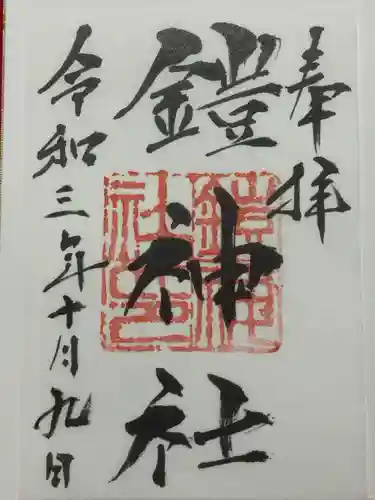 奉拝
鎧神社
令和三年十月九日